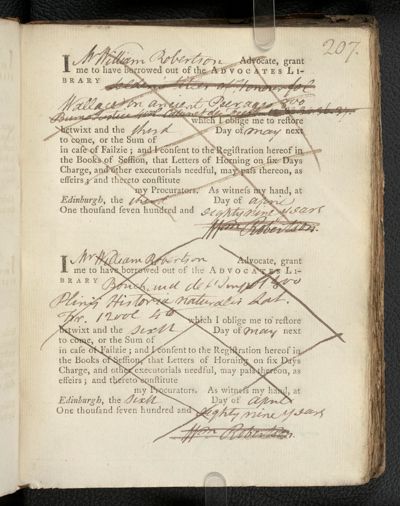 207.
I Mr William Robertson Advocate, grant
me to have borrowed out of the ADVOCATES LI-
BRARY
Wallace on ancient Peerages 800
which I oblige me to restore
betwixt and the third Day of May next
to come, or the Sum of
in case of Failzie; and I consent to the Registration hereof in
the Books of Session, that Letters of Horning on six Days
Charge, and other executorials needful, may pass thereon, as
effeirs; and thereto constitute
my Procurators. As witness my hand, at
Edinburgh, the third Day of april
One thousand seven hundred and eighty nine years
Wm Robertson.
I Mr William Robertson Advocate, grant
me to have borrowed out of the ADVOCATES LI-
BRARY
Plinij Historia naturalis
which I oblige me to restore
betwixt and the sixth Day of May next
to come, or the Sum of
in case of Failzie; and I consent to the Registration hereof in
the Books of Session, that Letters of Horning on six Days
Charge, and other executorials needful, may pass thereon, as
effeirs; and thereto constitute
my Procurators. As witness my hand, at
Edinburgh, the sixth Day of april
One thousand seven hundred and eighty nine years
Wm Robertson.